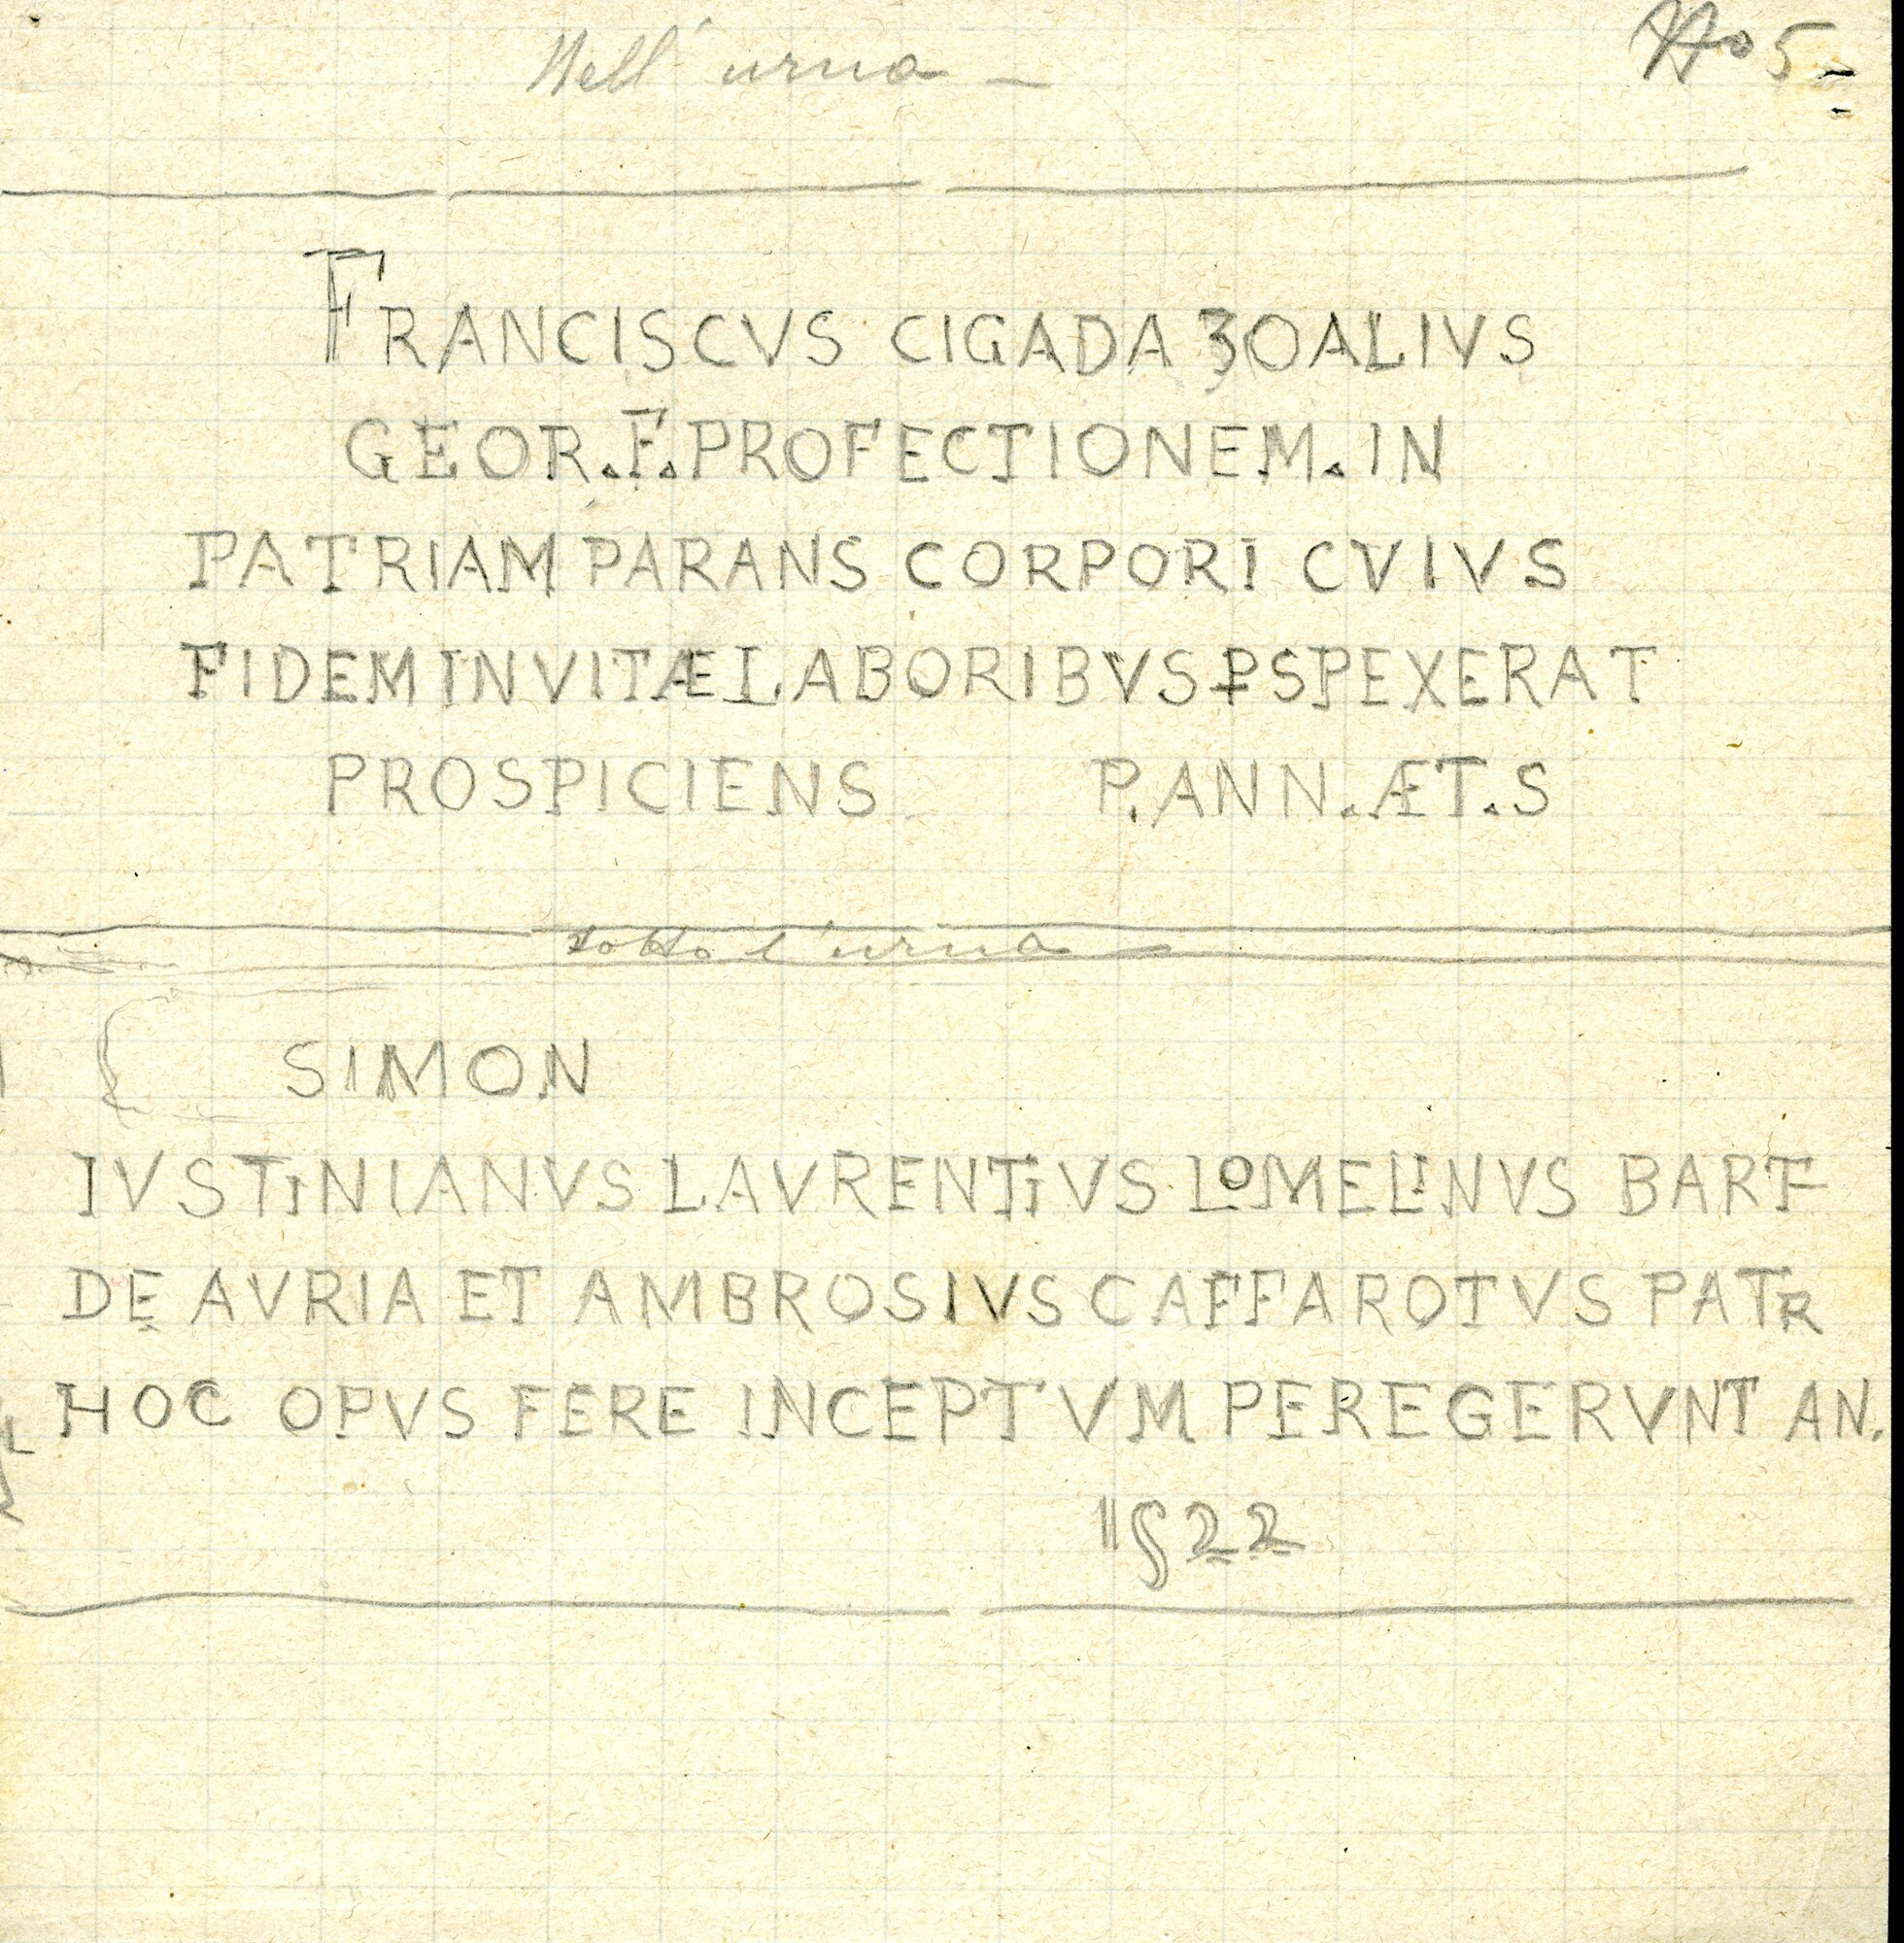 Nell' urna –
No 5 –
FRANCISCVS CIGADA ƷOALIVS
GEOR.F.PROFECTIONEM.IN
PATRIAM PARANS CORPORI CVIVS
FIDEM IN VITÆ LABORIBVS ꝐSPEXERAT
PROSPICIENS P.ANN.ÆT.S
sotto l'urna –
SIMON
IVSTINIANVS LAVRENTIVS LOMELINVS BART
DE AVRIA ET AMBROSIVS CAFFAROTVS PATR
HOC OPVS FERE INCEPTVM PEREGERVNT AN.
1522